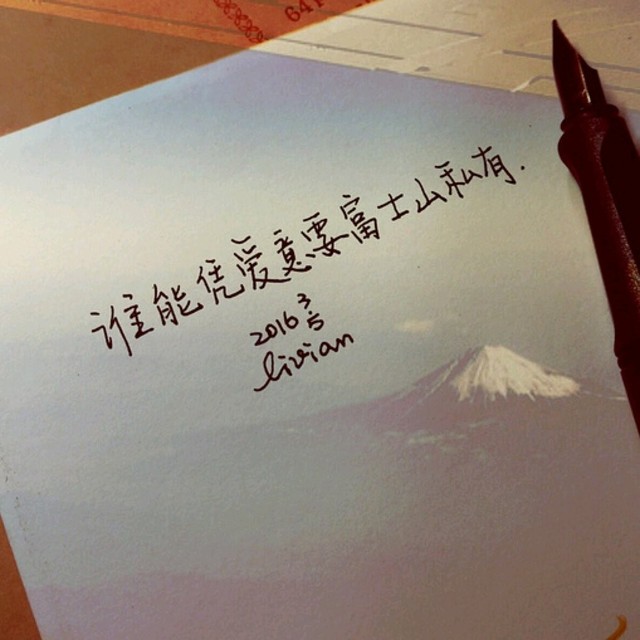 谁能凭爱意要富士山私有.
2016 3/5
livian